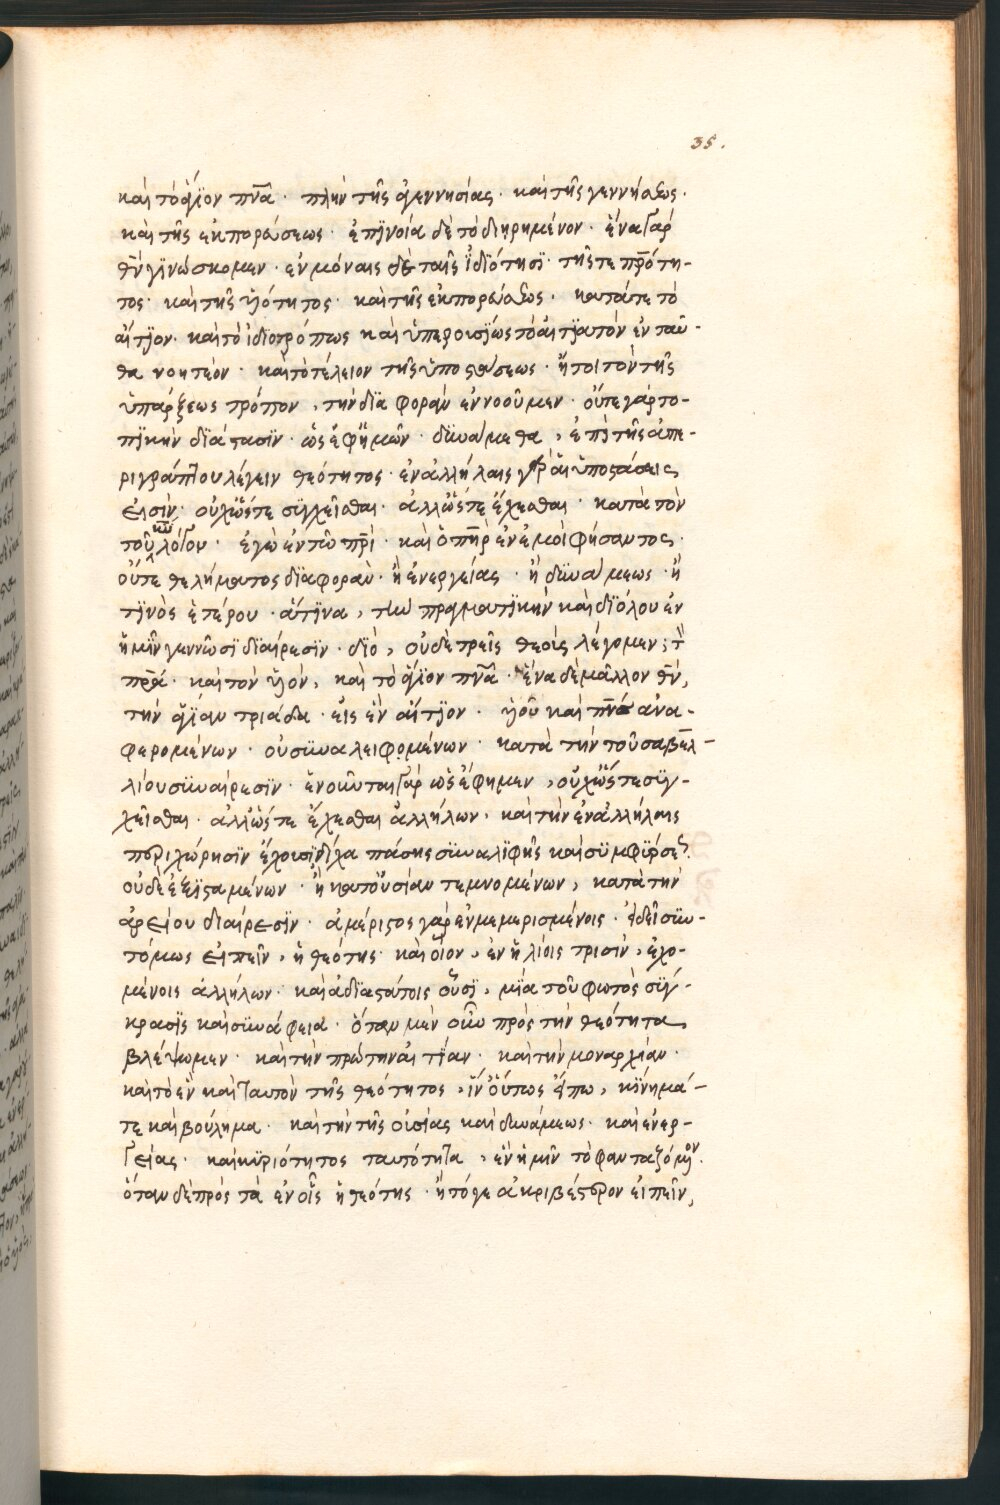 35.
καὶ τὸ ἅγϊον πν̅α · πλὴν τῆς ἀγεννησίας · καὶ τῆς γεννήσεως ·
καὶ τῆς ἐκπορεύσεως · ἐπϊνοία δὲ τὸ διῃρημένον · ἕνα γὰρ
θν̅ γϊνώσκομεν · ἐν μόναις δὲ ταῖς ἰδϊότησϊ · τῆς τε πρ̅ότη-
τος · καὶ τῆς ὑϊότητος · καὶ τῆς ἐκπορεύσεως · κατά τε τὸ
αἴτϊον · καὶ τὸ ἰδιοτρόπως καὶ ὑπερουσϊως τὸ αἰτϊατὸν ἐνταῦ-
θα νοητέον · καὶ τὸ τέλειον τῆς ὑποστάσεως · ἤτοι τὸν τῆς
ὑπάρξεως τρόπον, τὴν δϊαφορὰν ἐννοοῦμεν · οὔτε γὰρ το-
πϊκὴν δϊάστασϊν · ὡς ἐφ' ἡμῶν · δϋνάμεθα, ἐπὶ τῆς ἀπε-
ριγράπτου λέγειν θεότητος · ἐν ἀλλήλαις γὰρ αἱ ὑποστάσεις
εἰσὶν · οὐχ ὥστε σϋγχεῖσθαι · ἀλλ' ὥστε ἔχεσθαι · κατὰ τὸν
τοῦ κυ̅ λόγον · ἐγὼ ἐν τῶ πρ̅ὶ · καὶ ὁ πη̅ρ ἐν ἐμοὶ φήσαντος ·
οὔτε θελήματος δϊαφορὰν · ἢ ἐνεργείας · ἢ δϋνάμεως · ἤ
τϊνὸς ἑτέρου · ἅτϊνα, τὴν πραγματϊκὴν καὶ δϊόλου ἐν
ἡμῖν γεννῶσϊ δϊαίρεσϊν · δϊὸ, οὐδὲ τρεῖς θεοὺς λέγομεν; τὸν
πρ̅α · καὶ τὸν ὑϊόν, καὶ τὸ ἅγϊον πν̅α · ἕνα δὲ μᾶλλον θν̅,
τὴν ἁγίαν τριάδα · εἰς ἓν αἴτϊον · ὑϊοῦ καὶ πν̅ς ἀνα-
φερομένων · οὐ σϋναλειφομένων · κατὰ τὴν τοῦ σαβελ-
λίου σϋναίρεσϊν · ἑνοῦνται γὰρ ὡς ἔφημεν, οὐχ ὥστε σϋγ-
χεῖσθαι · ἀλλ' ὥστε ἔχεσθαι ἀλλήλων · καὶ τὴν ἐν ἀλλήλαις
περιχώρησϊν ἔχουσϊ δίχα πάσης σϋναλϊφῆς καὶ σϋμφϋρσεως.
οὐδὲ ἐξϊσταμένων · ἢ κατ' οὐσίαν τεμνομένων, κατὰ τὴν
ἀρείου διαίρεσϊν · ἀμέριστος γὰρ ἐν μεμερισμένοις · εἰ δεῖ σϋν-
τόμως εἰπεῖν, ἡ θεότης · καὶ οἷον, ἐν ἡλίοις τρισὶν, ἐχο-
μένοις ἀλλήλων · καὶ ἀδϊαστάτοις οὖσϊ, μία τοῦ φωτὸς σϋγ-
κρασϊς καὶ σϋνάφεια · ὅταν μὲν οὖν πρὸς τὴν θεότητα
βλέψωμεν · καὶ τὴν πρώτην αἰτίαν · καὶ τὴν μοναρχίαν ·
καὶ τὸ ἓν καὶ ταυτὸν τῆς θεότητος, ἵν' οὕτως εἴπω, κίνημά-
τε καὶ βούλημα · καὶ τὴν τῆς οὐσίας καὶ δυνάμεως · καὶ ἐνερ-
γείας · καὶ κϋριότητος ταυτότητα, ἓν ἡμῖν τὸ φανταζόμενον.
ὅταν δὲ πρὸς τὰ ἐν οἷς ἡ θεότης · ἢ τόγε ἀκριβέστερον εἰπεῖν,